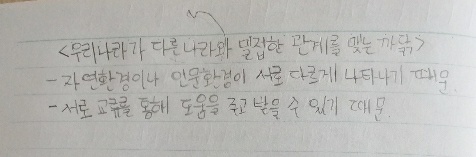 <우리나라가 다른나라와 밀접한 관계를 맺는 까닭>
- 자연환경이나 인문환경이 서로 다르게 나타나기 때문.
- 서로 교류를 통해 도움을 주고 받을 수 있기 때문.